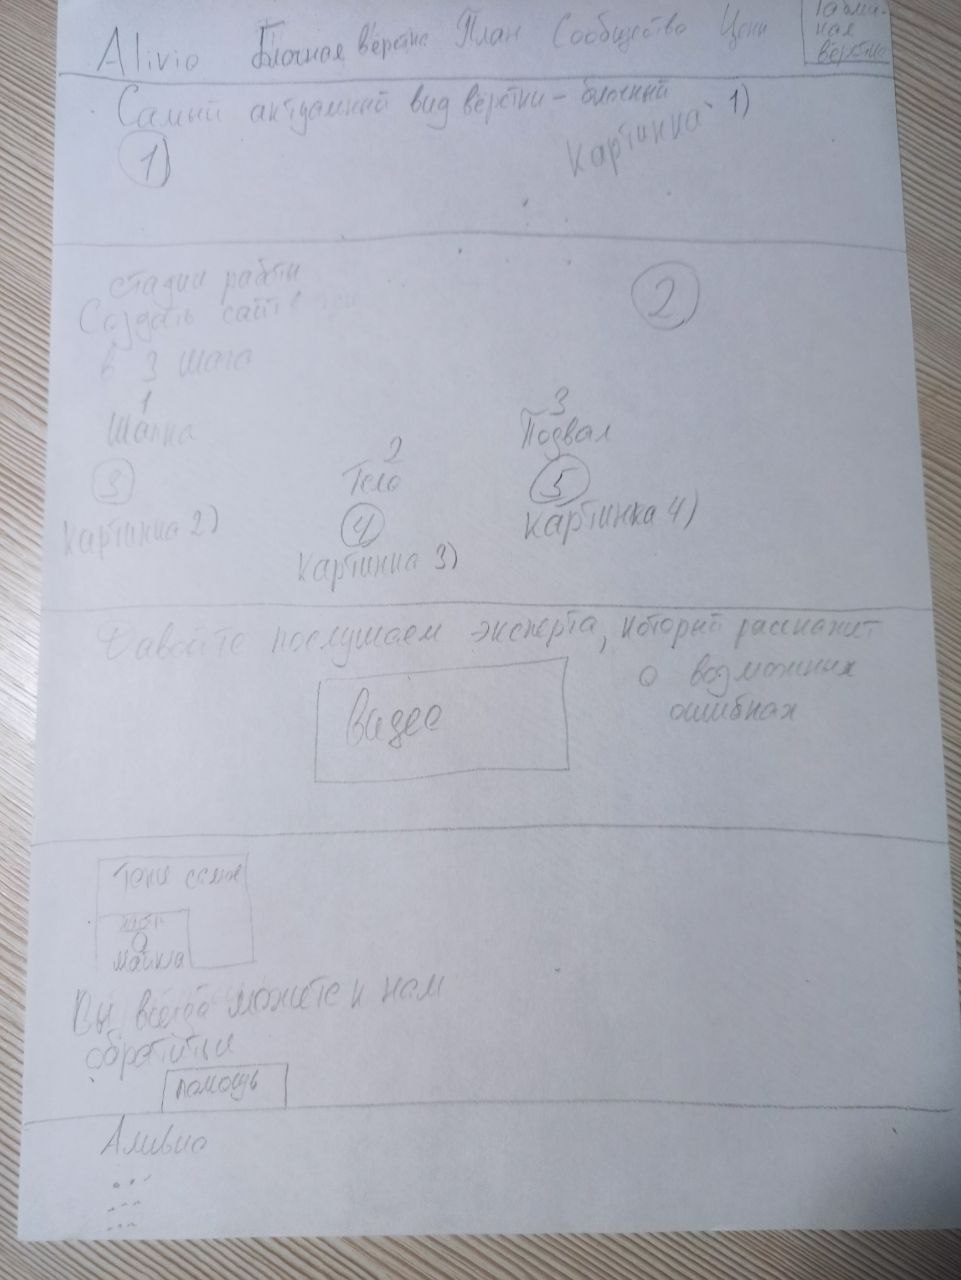 Alivio Блочная вёрстка План Сообщество Цены
Табли-
ная
вёрстка
Самый актуальный вид вёрстки - блочный
1)
Картинка 1)
стадии работы
Создать сайт
в 3 шага
2
1
Шапка
3
Картинка 2)
2
Тело
4
Картинка 3)
3
Подвал
5
Картинка 4)
Давайте послушаем эксперта, который расскажет
о возможных
ошибках
Видео
маила
Вы всегда можете к нам
обратиться
помощь
Аливио